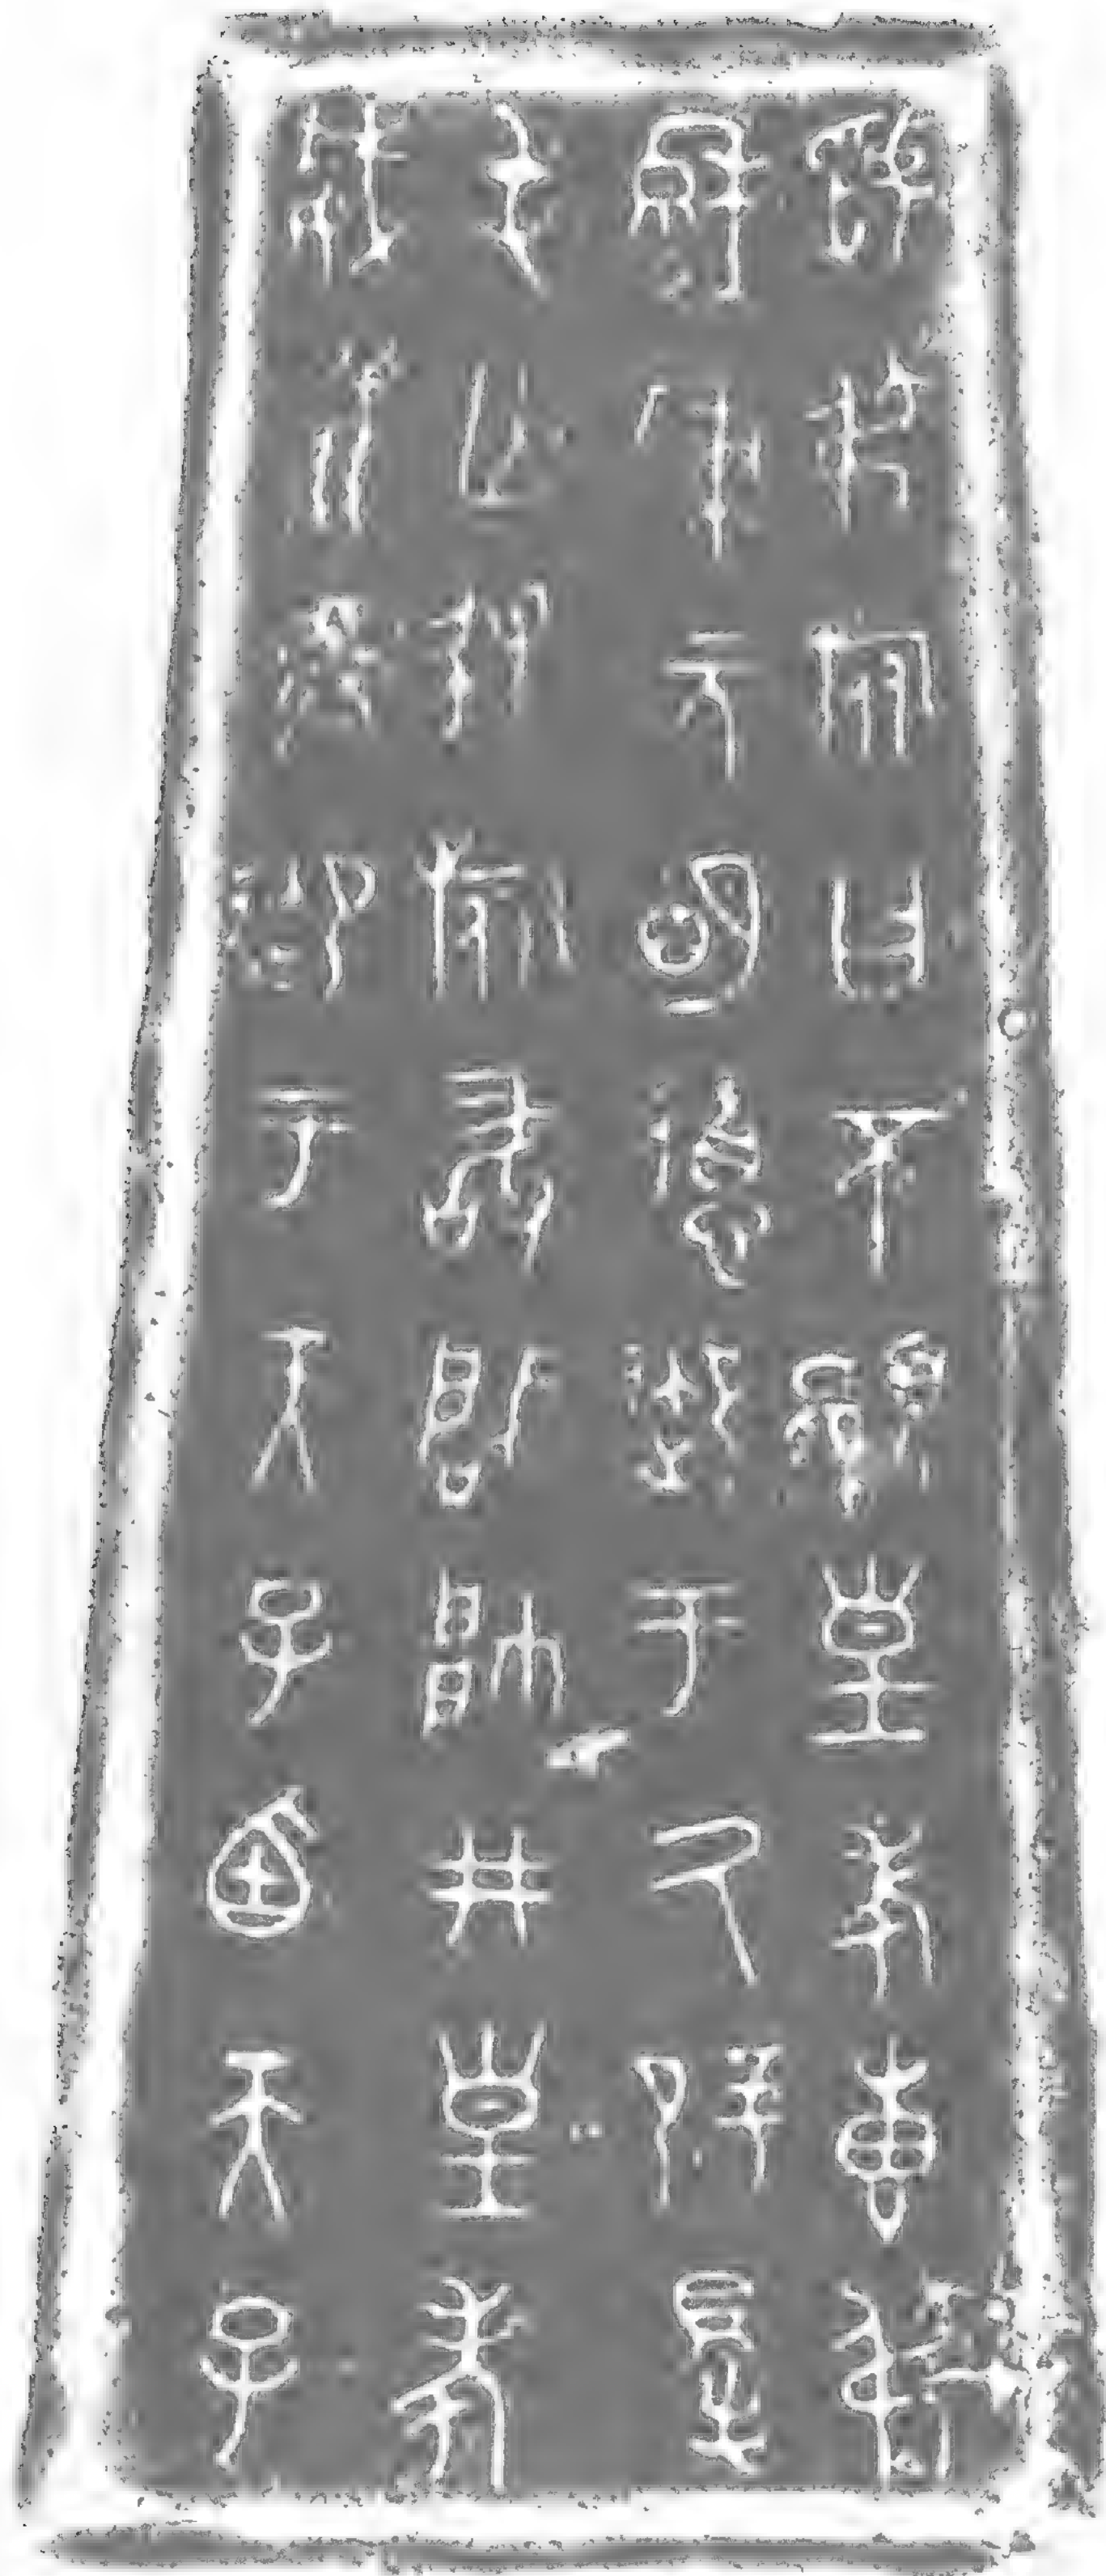 虢叔旅曰不顯皇考叀叔
穆=秉元明德御于氒辟㝵
屯亡敃旅敢肈帥井皇考
威義淄御于天子迺天子